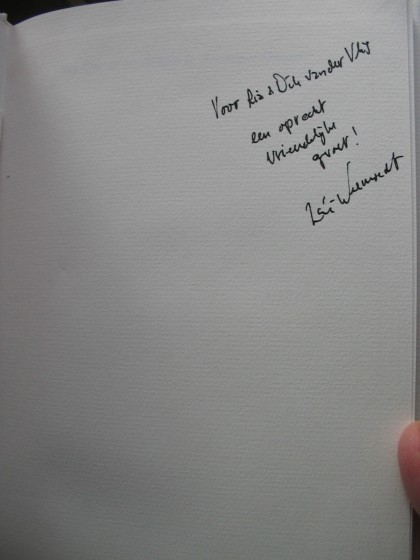 Voor Ria & Dick van der Vlis
een oprecht
vriendelijke
groet!
Levi Weemoedt